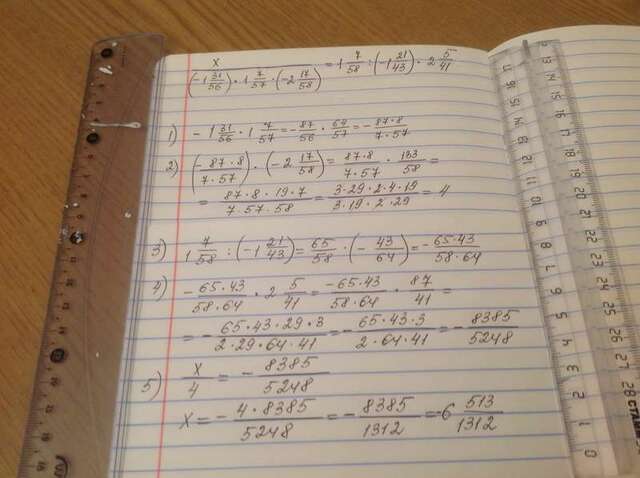 x/((-1 31/56) · 1 7/57 · (-2 17/58)) = 1 7/58 : (-1 21/43) · 2 5/41
1) -1 31/56 · 1 7/57 = -87/56 · 64/57 = -87·8/7·57
2) (-87·8/7·57) · (-2 17/58) = 87·8/7·57 · 133/58 =
= 87·8·19·7/7·57·58 = 3·29·2·4·19/3·19·2·29 = 4
3) 1 7/58 : (-1 21/43) = 65/58 · (-43/64) = -65·43/58·64
4) -65·43/58·64 · 2 5/41 = -65·43/58·64 · 87/41 =
= -65·43·29·3/2·29·64·41 = -65·43·3/2·64·41 = -8385/5248
5) x/4 = -8385/5248
x = -4·8385/5248 = -8385/1312 = 6 513/1312